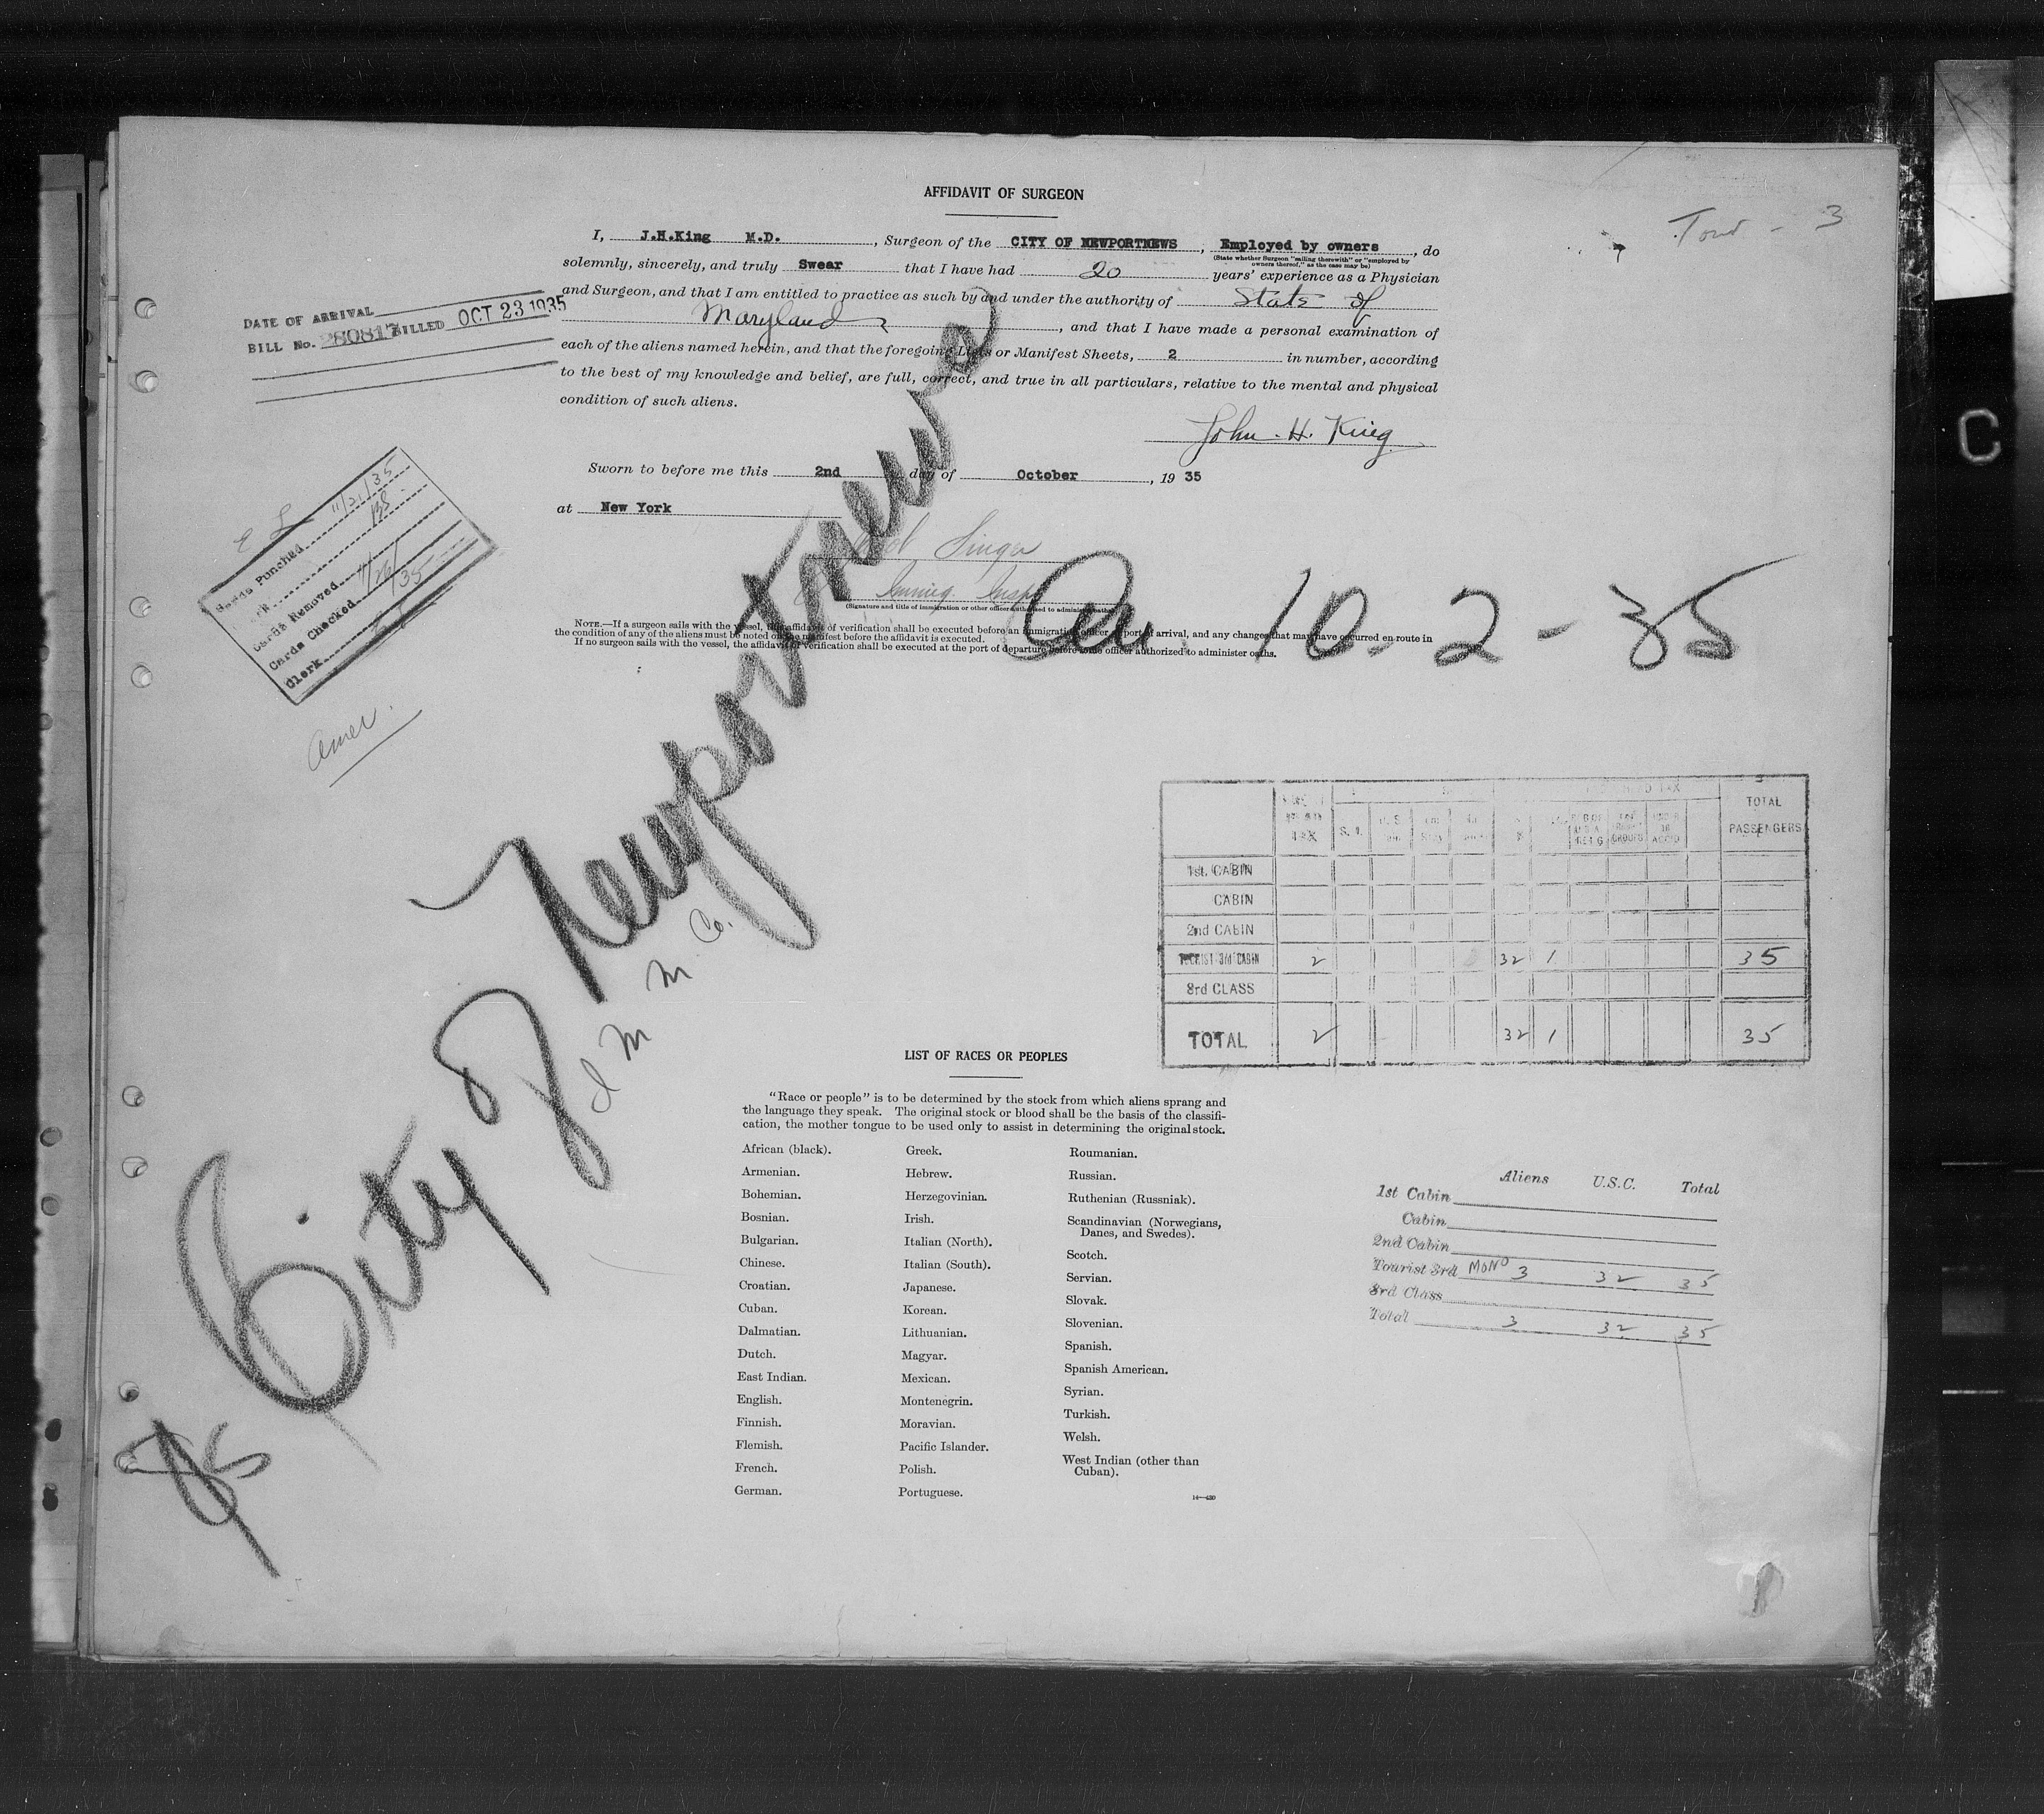 AFFIDAVIT OF SURGEON
Tour - 3
I, J.H.King M.D. , Surgeon of the CITY OF NEWPORTNEWS , Employed by owners , do
(State whether Surgeon "sailing therewith" or "employed by
owners thereof," as the case may be)
solemnly, sincerely, and truly Swear that I have had 20 years' experience as a Physician
and Surgeon, and that I am entitled to practice as such by and under the authority of State of
Maryland , and that I have made a personal examination of
each of the aliens named herein, and that the foregoing Lists or Manifest Sheets, 2 in number, according
to the best of my knowledge and belief, are full, correct, and true in all particulars, relative to the mental and physical
condition of such aliens.
John. H. King
Sworn to before me this 2nd day of October , 19 35
at New York
Singer
Immig. Insp
(Signature and title of immigration or other officer authorized to administer oaths)
NOTE.—If a surgeon sails with the vessel, the affidavit of verification shall be executed before an immigration officer at port of arrival, and any changes that may have occurred en route in
the condition of any of the aliens must be noted on the manifest before the affidavit is executed.
If no surgeon sails with the vessel, the affidavit of verification shall be executed at the port of departure before some officer authorized to administer oaths.
DATE OF ARRIVAL
BILL No. 280817 BILLED OCT 23 1935
Cards Punched 11/21/35
Cards Removed
Cards Checked 11/26/35
Clerk
Amer.
City of Newportnews
I M M M Co.
Arr 10-2-35
85
TOTAL
PASSENGERS
TAX S. I.
1st. CABIN
CABIN
2nd CABIN
TOURIST 3rd CABIN 2 32 1 35
3rd CLASS
TOTAL 2 32 1 35
LIST OF RACES OR PEOPLES
"Race or people" is to be determined by the stock from which aliens sprang and
the language they speak. The original stock or blood shall be the basis of the classifi-
cation, the mother tongue to be used only to assist in determining the original stock.
African (black).
Armenian.
Bohemian.
Bosnian.
Bulgarian.
Chinese.
Croatian.
Cuban.
Dalmatian.
Dutch.
East Indian.
English.
Finnish.
Flemish.
French.
German.
Greek.
Hebrew.
Herzegovinian.
Irish.
Italian (North).
Italian (South).
Japanese.
Korean.
Lithuanian.
Magyar.
Mexican.
Montenegrin.
Moravian.
Pacific Islander.
Polish.
Portuguese.
Roumanian.
Russian.
Ruthenian (Russniak).
Scandinavian (Norwegians,
Danes, and Swedes).
Scotch.
Servian.
Slovak.
Slovenian.
Spanish.
Spanish American.
Syrian.
Turkish.
Welsh.
West Indian (other than
Cuban).
14—420
Aliens U.S.C. Total
1st Cabin
Cabin
2nd Cabin
Tourist 3rd MONO 3 32 35
3rd Class
Total 3 32 35
C